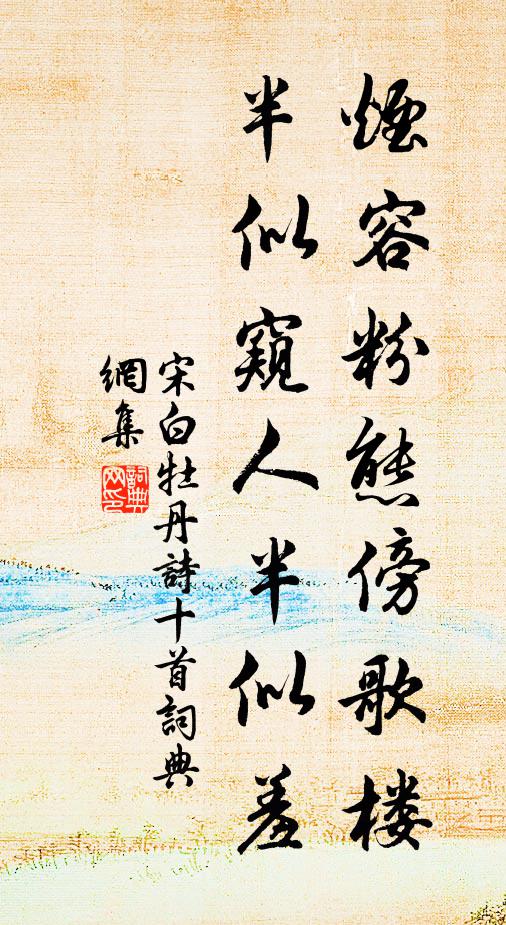 煙容粉態傍歌楼
半似窺人半似羞
宋白牡丹詩十首詞典
網集
詞典
网印